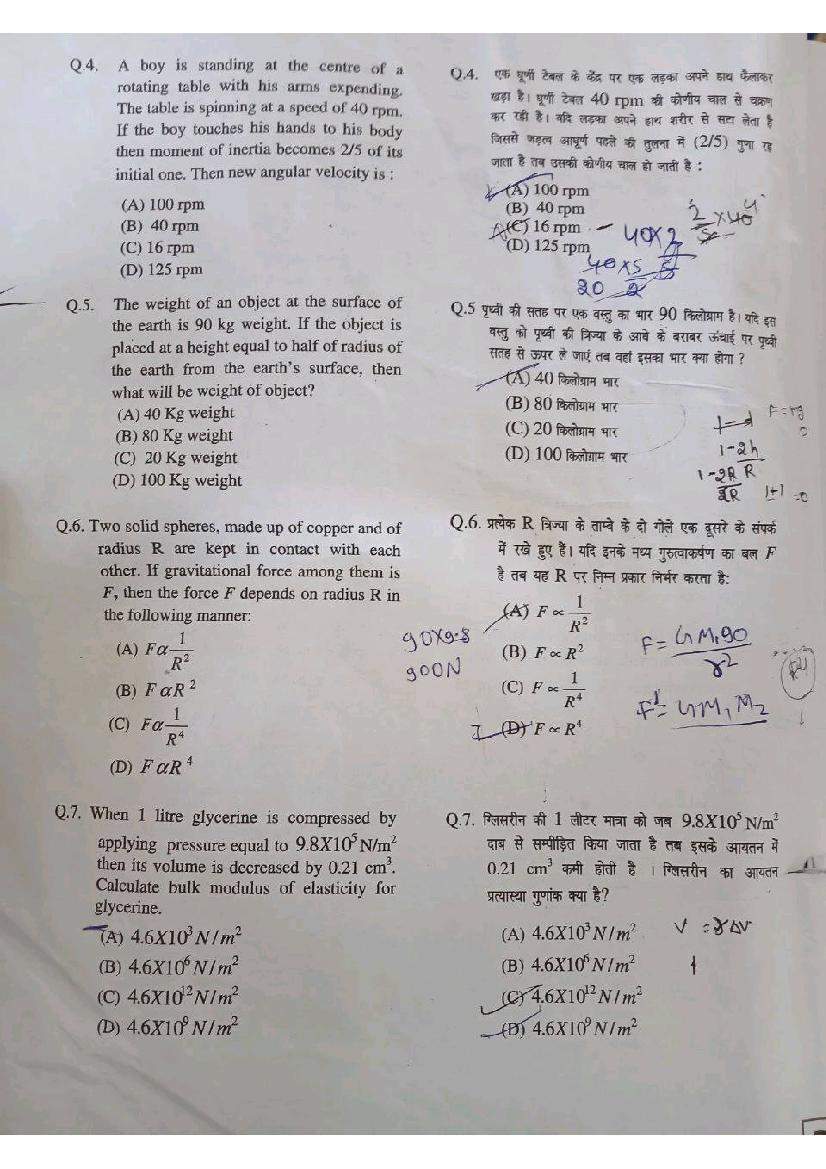 Q.4. A boy is standing at the centre of a
rotating table with his arms expending.
The table is spinning at a speed of 40 rpm.
If the boy touches his hands to his body
then moment of inertia becomes 2/5 of its
initial one. Then new angular velocity is :
(A) 100 rpm
(B) 40 rpm
(C) 16 rpm
(D) 125 rpm
Q.5. The weight of an object at the surface of
the earth is 90 kg weight. If the object is
placed at a height equal to half of radius of
the earth from the earth's surface, then
what will be weight of object?
(A) 40 Kg weight
(B) 80 Kg weight
(C) 20 Kg weight
(D) 100 Kg weight
Q.6. Two solid spheres, made up of copper and of
radius R are kept in contact with each
other. If gravitational force among them is
F, then the force F depends on radius R in
the following manner:
(A) Fα 1/R²
(B) F αR ²
(C) Fα 1/R⁴
(D) F αR ⁴
Q.7. When 1 litre glycerine is compressed by
applying pressure equal to 9.8X10⁵ N/m²
then its volume is decreased by 0.21 cm³.
Calculate bulk modulus of elasticity for
glycerine.
(A) 4.6X10³ N/m²
(B) 4.6X10⁶ N/m²
(C) 4.6X10¹² N/m²
(D) 4.6X10⁹ N/m²
Q.4. एक घूर्णी टेबल के केंद्र पर एक लड़का अपने हाथ फैलाकर
खड़ा है। घूर्णी टेबल 40 rpm की कोणीय चाल से चक्रण
कर रही है। यदि लड़का अपने हाथ शरीर से सटा लेता है
जिससे जड़त्व आघूर्ण पहले की तुलना में (2/5) गुना रह
जाता है तब उसकी कोणीय चाल हो जाती है :
(A) 100 rpm
(B) 40 rpm
(C) 16 rpm
(D) 125 rpm
2/5 ×40
40×2/5
40×5/2
20
Q.5 पृथ्वी की सतह पर एक वस्तु का भार 90 किलोग्राम है। यदि इस
वस्तु को पृथ्वी की त्रिज्या के आधे के बराबर ऊंचाई पर पृथ्वी
सतह से ऊपर ले जाएं तब वहां इसका भार क्या होगा ?
(A) 40 किलोग्राम भार
(B) 80 किलोग्राम भार
(C) 20 किलोग्राम भार
(D) 100 किलोग्राम भार
1-2h/R
1-2R/2R
1+1 =0
Q.6. प्रत्येक R त्रिज्या के ताम्बे के दो गोले एक दूसरे के संपर्क
में रखे हुए हैं। यदि इनके मध्य गुरुत्वाकर्षण का बल F
है तब यह R पर निम्न प्रकार निर्भर करता है:
(A) F ∝ 1/R²
(B) F ∝ R²
(C) F ∝ 1/R⁴
(D) F ∝ R⁴
90×9.8
900N
F= GM,90/r²
F'= GM₁M₂
Q.7. ग्लिसरीन की 1 लीटर मात्रा को जब 9.8X10⁵ N/m²
दाब से सम्पीड़ित किया जाता है तब इसके आयतन में
0.21 cm³ कमी होती है । ग्लिसरीन का आयतन
प्रत्यास्था गुणांक क्या है?
(A) 4.6X10³ N/m²
(B) 4.6X10⁶ N/m²
(C) 4.6X10¹² N/m²
(D) 4.6X10⁹ N/m²